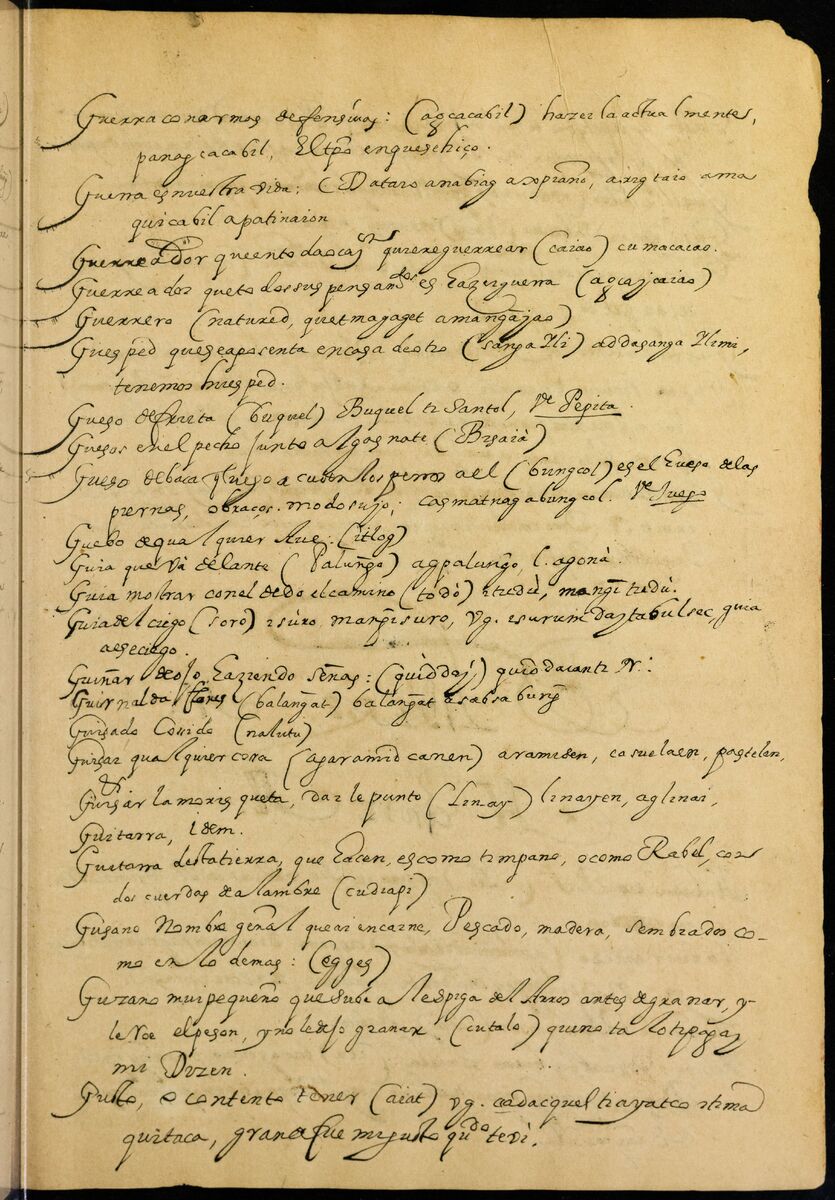 Guerra con armas defensivas: (agcacabil) hazerla actualmente,
panag cacabil, El tpõ en que se hiço.
Guerra es nuestra vida: (
quicabil a patinaion
Guerreador que en todaocaçon quiere guerrear (caiao) cumacaiao.
Guerreador que todos sus pensamtos es hazer guerra (agcajcaiao)
Guerrero (natured, quetmagaget a mangajao)
Guesped que se aposenta en casa de otro (sanga Ili) addasanga Ilimi,
tenemos huesped.
Gueso de fruta (buquel) Buquel ti Santol, Ve Pepita.
Guesos en el pecho junto al gasnate (Bisaià)
Gueso de baca q luego acuden los perros a el (bungcol) es el hueso de las
piernas, o braços. modo sujo; casmatnag a bungcol. Ve Juego
Guebo de qualquier Aue. (itlog)
Guia que va delante (Palungo) agpalungo, l. agonà.
Guia mostrar con el dedo el camino (todò) itudù, mangitudù.
Guia del ciego (sorò) isuro, mangisuro, Vg. isurum daytabulsec, guia
a ese ciego.
Guiñar de ojo haziendo señas: (quiddaj) quiddaianti N.
Guirnalda flores (balangat) balangat a sabsabung
Guisado Cosido (nalutu)
Guisar qualquier cosa (aparamid canen) aramiden, casuelaen, pastelen,
Guisar la morisqueta, darle punto (Linay) linayen, aglinai,
Guitarra, idem.
Guitarra desta tierra, que hacen, es como timpano, o como Rabel, con
dos cuerdas de alambre (cudiapi)
Gusano Nombre general que ai en carne, Pescado, madera, sembrados co-
mo en lo demas: (egges)
Guzano mui pequeño que sube a la espiga del Arros antes de granar, y
le Roe el peson, y no le dejo granar. (cutalo) quinotalo ti pagay
mi Dizen.
Gusto, o contento tener (aiat) Vg. cadacquel ti ayatco itima
quitaca, grande fue mi gusto qdo te vi.